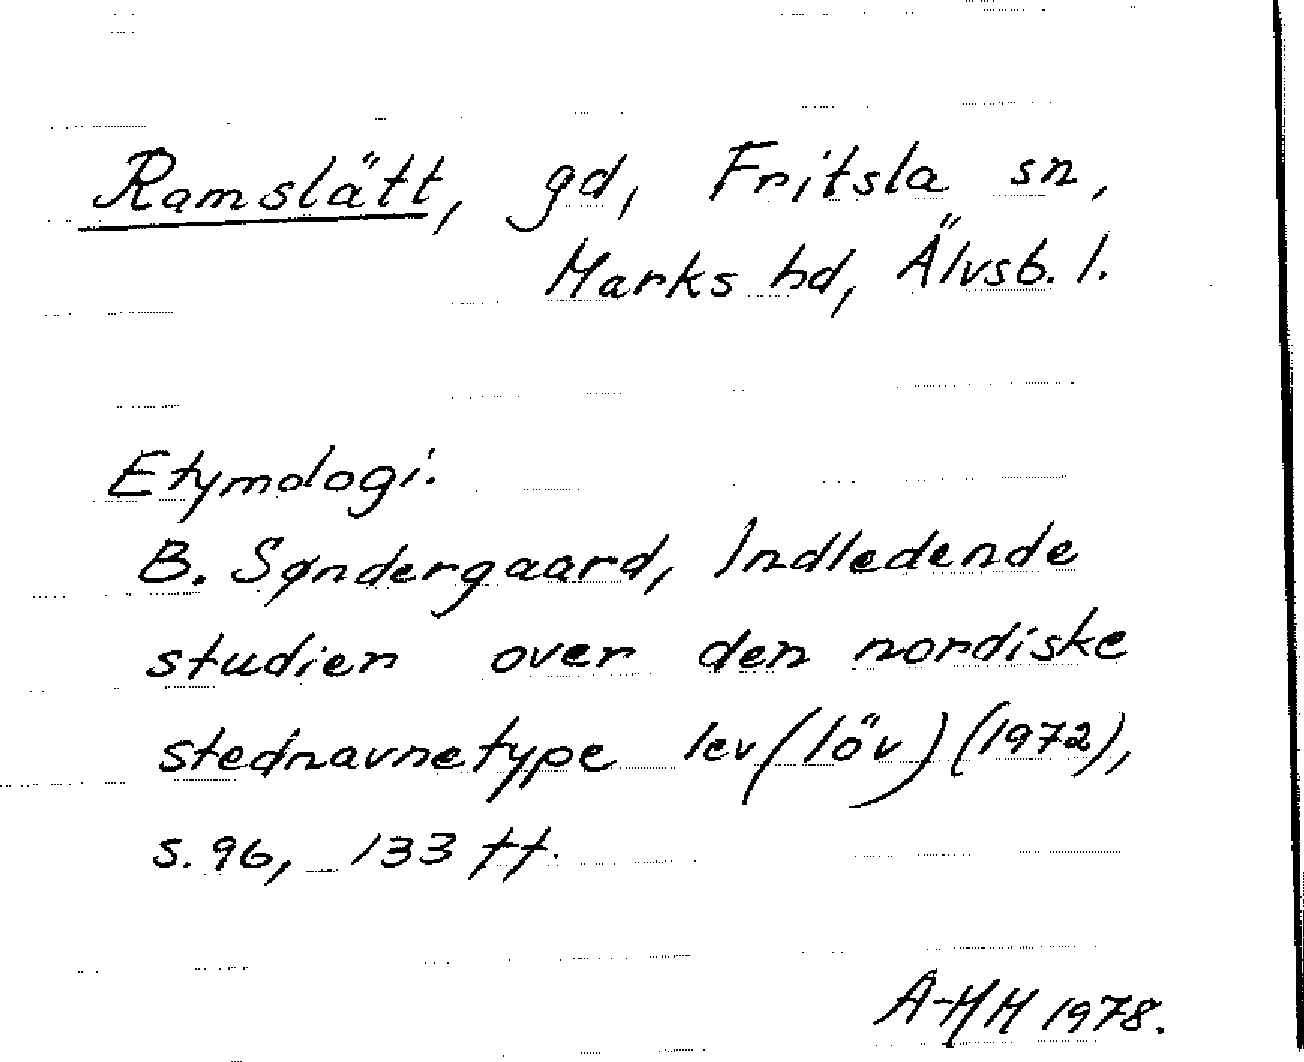 Ramslätt, gd, Fritsla sn,
Marks hd, Älvsb. l.
Etymologi.
B. Søndergaard, Indledende
studier over den nordiske
stednavnetype lev (löv) (1972),
s. 96, 133 ff.
A-HH 1978.